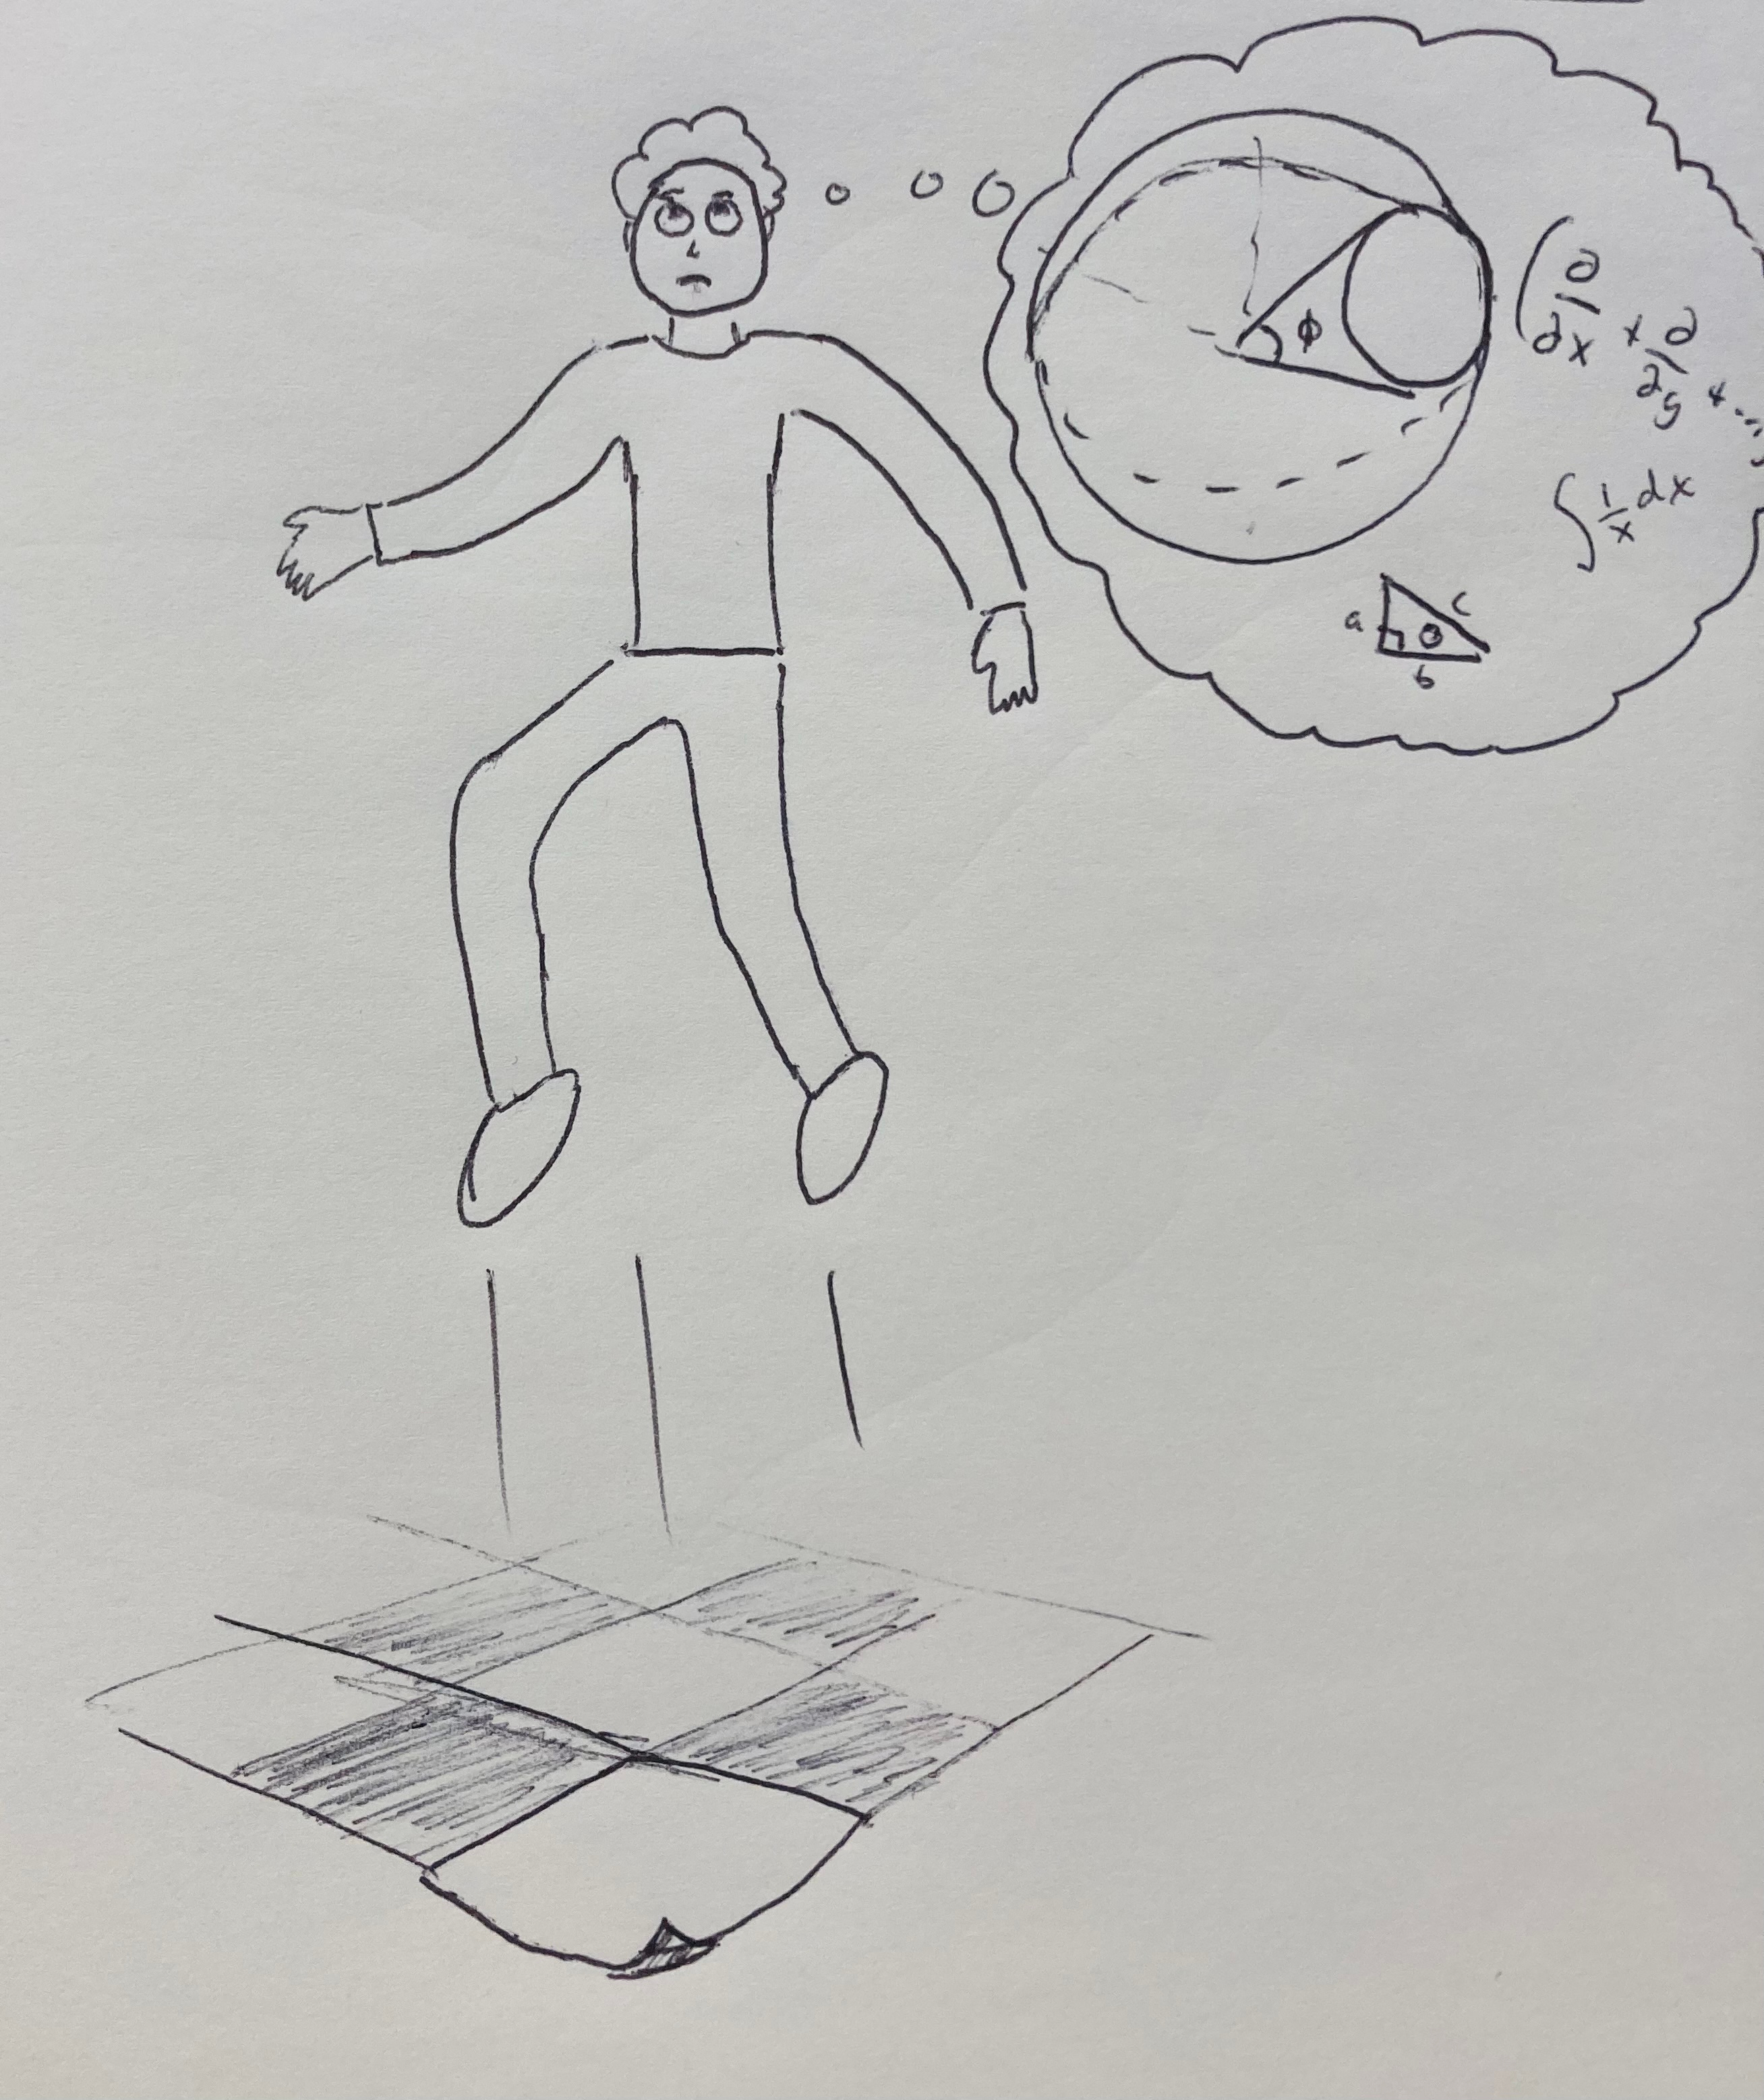 ϕ
(∂/∂x + ∂/∂y + ...
∫ 1/x dx
a c
θ
b